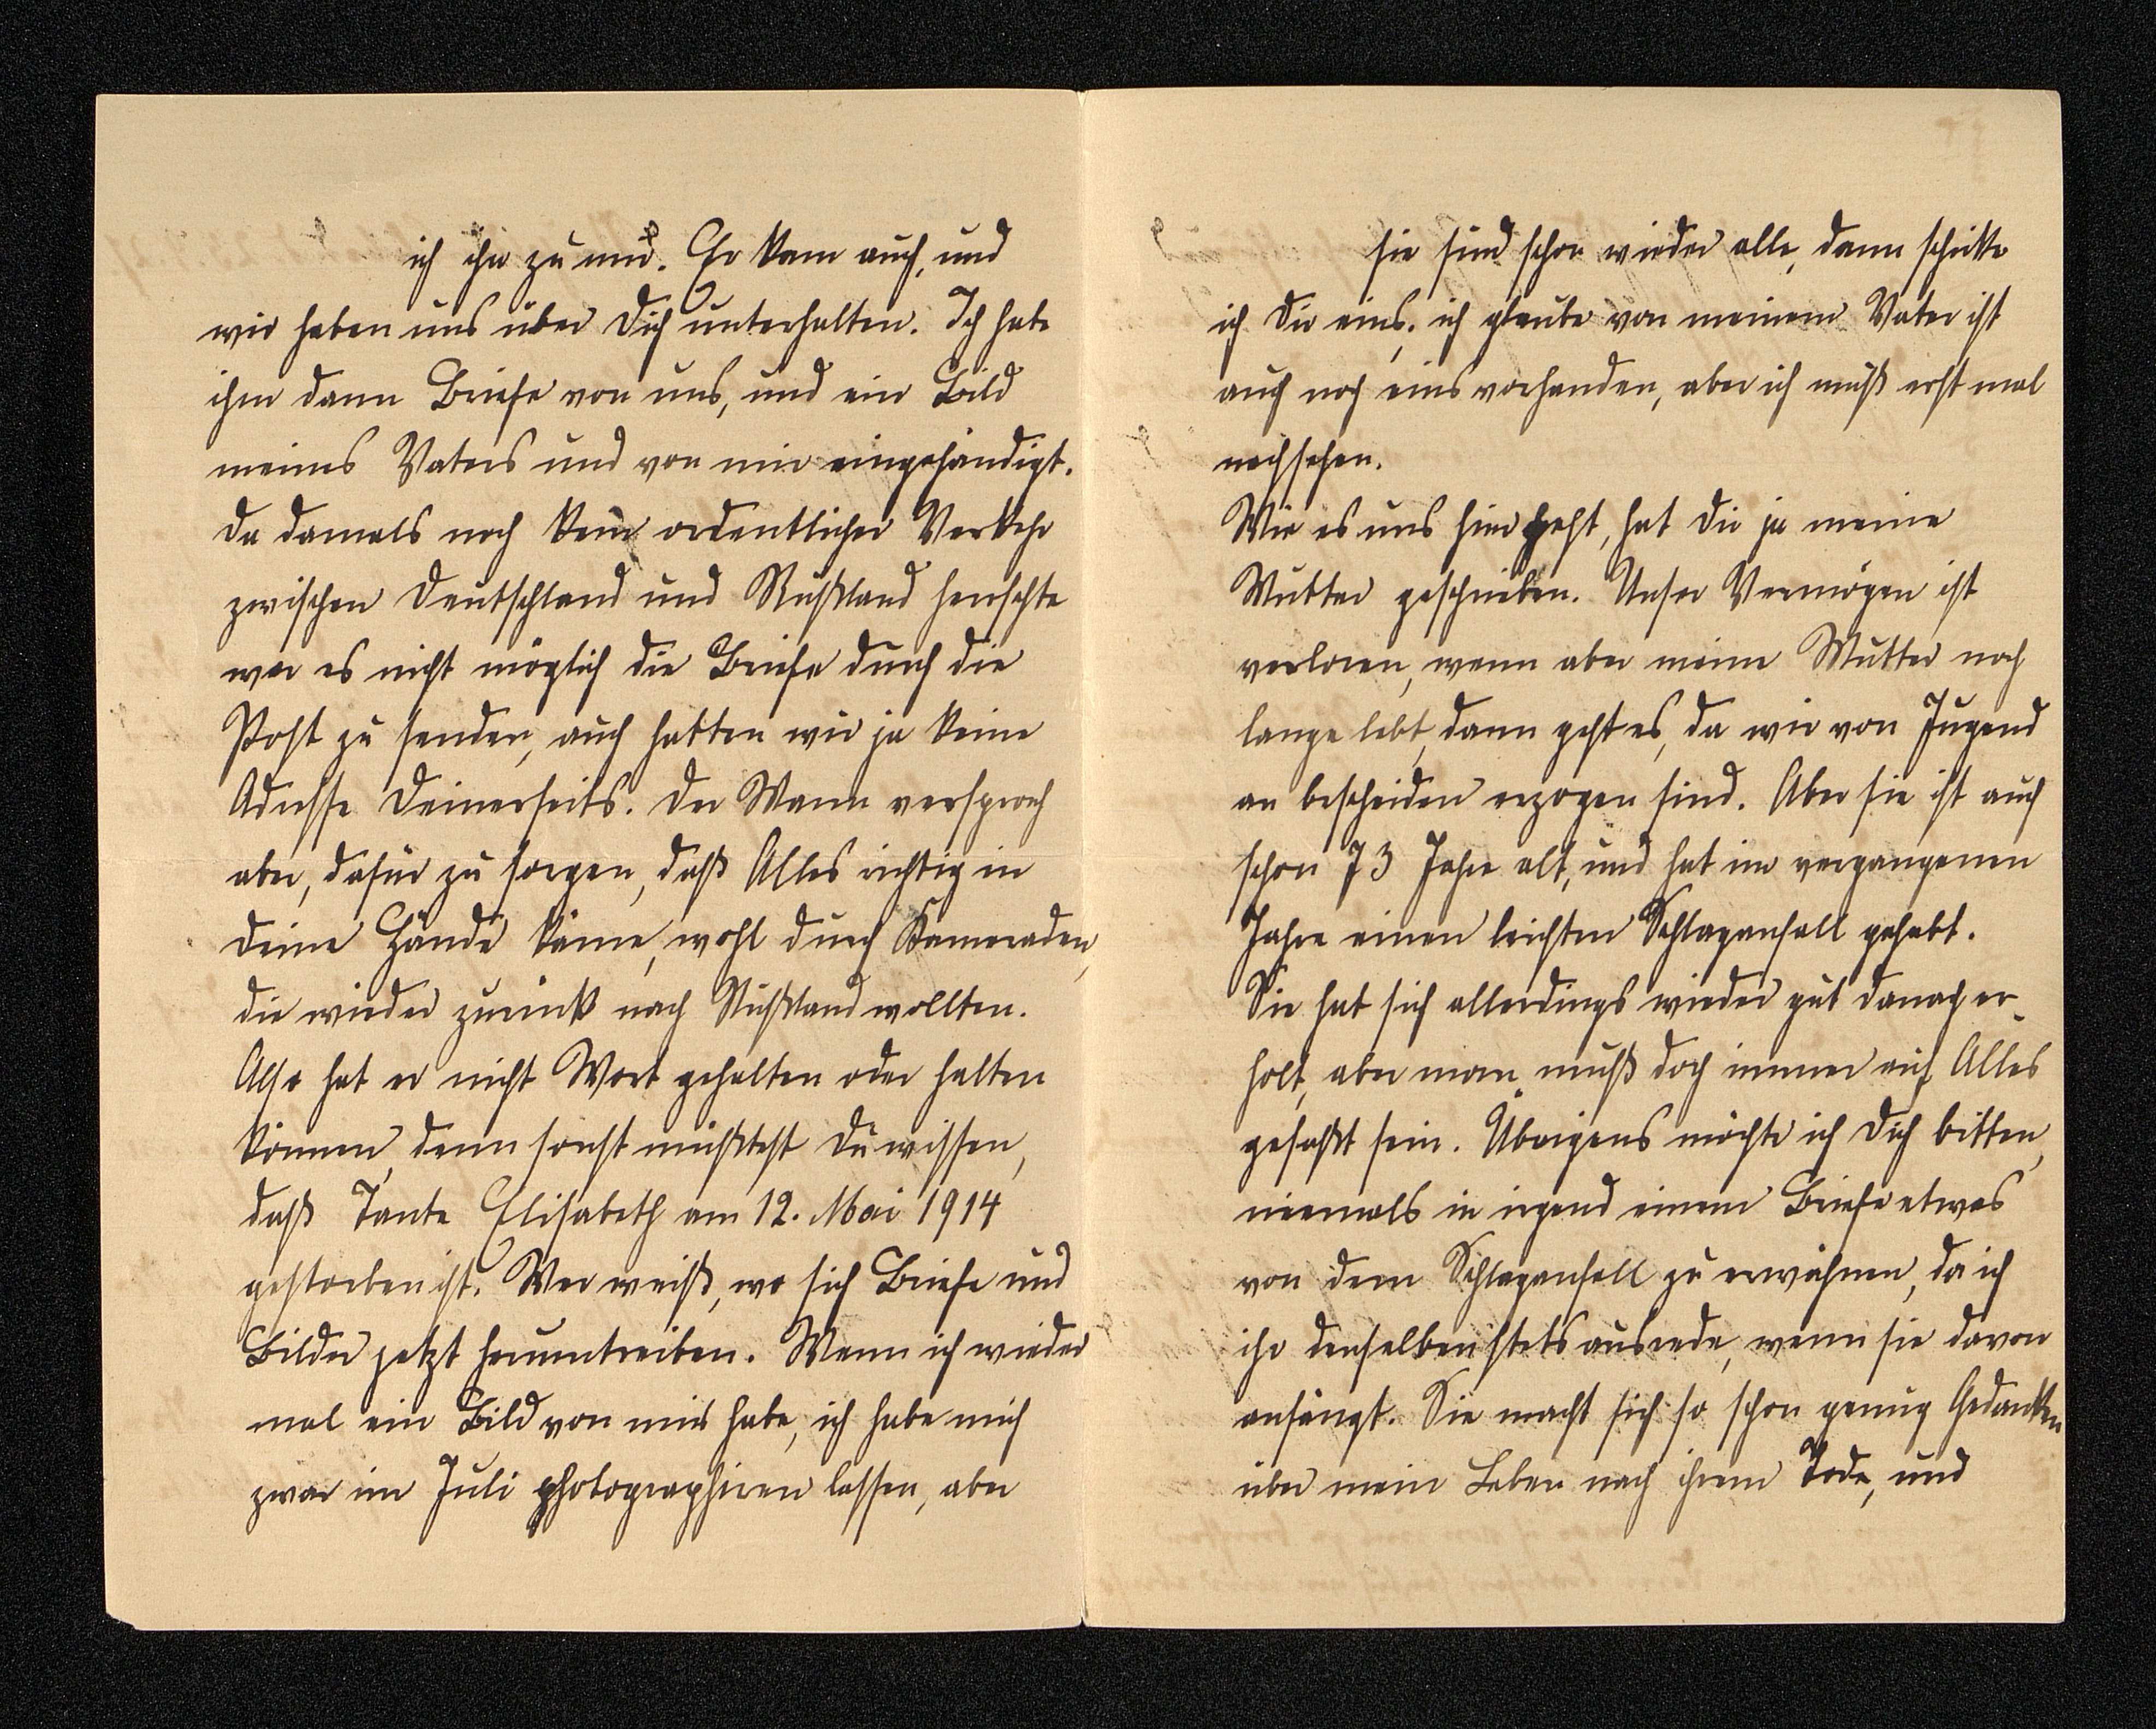 ich ihn zu mir. Er kam auch, und
wir haben uns über Dich unterhalten. Ich habe
ihm dann Briefe von uns, und ein Bild
meines Vaters und von mir eingehändigt.
Da damals noch kein ordentlicher Verkehr
zwischen Deutschland und Rußland herrschte
war es nicht möglich die Briefe durch die
Post zu senden, auch hatten wir ja keine
Adresse Deinerseits. Der Mann versprach
aber, dafür zu sorgen, daß Alles richtig in
Deine Hände käme, wohl durch Kameraden,
die wieder zurück nach Rußland wollten.
Also hat er nicht Wort gehalten oder halten
können, denn sonst müßtest Du wissen,
daß Tante Elisabeth am 12. Mai 1914
gestorben ist. Wer weiß, wo sich Briefe und
Bilder jetzt herumtreiben. Wenn ich wieder
mal ein Bild von mir habe, ich habe mich
zwar im Juli photographiren lassen, aber
sie sind schon wieder alle, dann schicke
ich Dir eins, ich glaube von meinem Vater ist
auch noch eins vorhanden, aber ich muß erst mal
nachsehen.
Wie es uns hier geht, hat Dir ja meine
Mutter geschrieben. Unser Vermögen ist
verloren, wenn aber meine Mutter noch
lange lebt, dann geht es, da wir von Jugend
an bescheiden erzogen sind. Aber sie ist auch
schon 73 Jahre alt, und hat im vergangenen
Jahre einen leichten Schlaganfall gehabt.
Sie hat sich allerdings wieder gut danach er-
holt, aber man muß doch immer auf Alles
gefaßt sein. Übrigens möchte ich Dich bitten,
niemals in irgend einem Briefe etwas
von dem Schlaganfall zu erwähnen, da ich
ihr denselben stets ausrede, wenn sie davon
anfängt. Sie macht sich so schon genug Gedanken
über mein Leben nach ihrem Tode, und